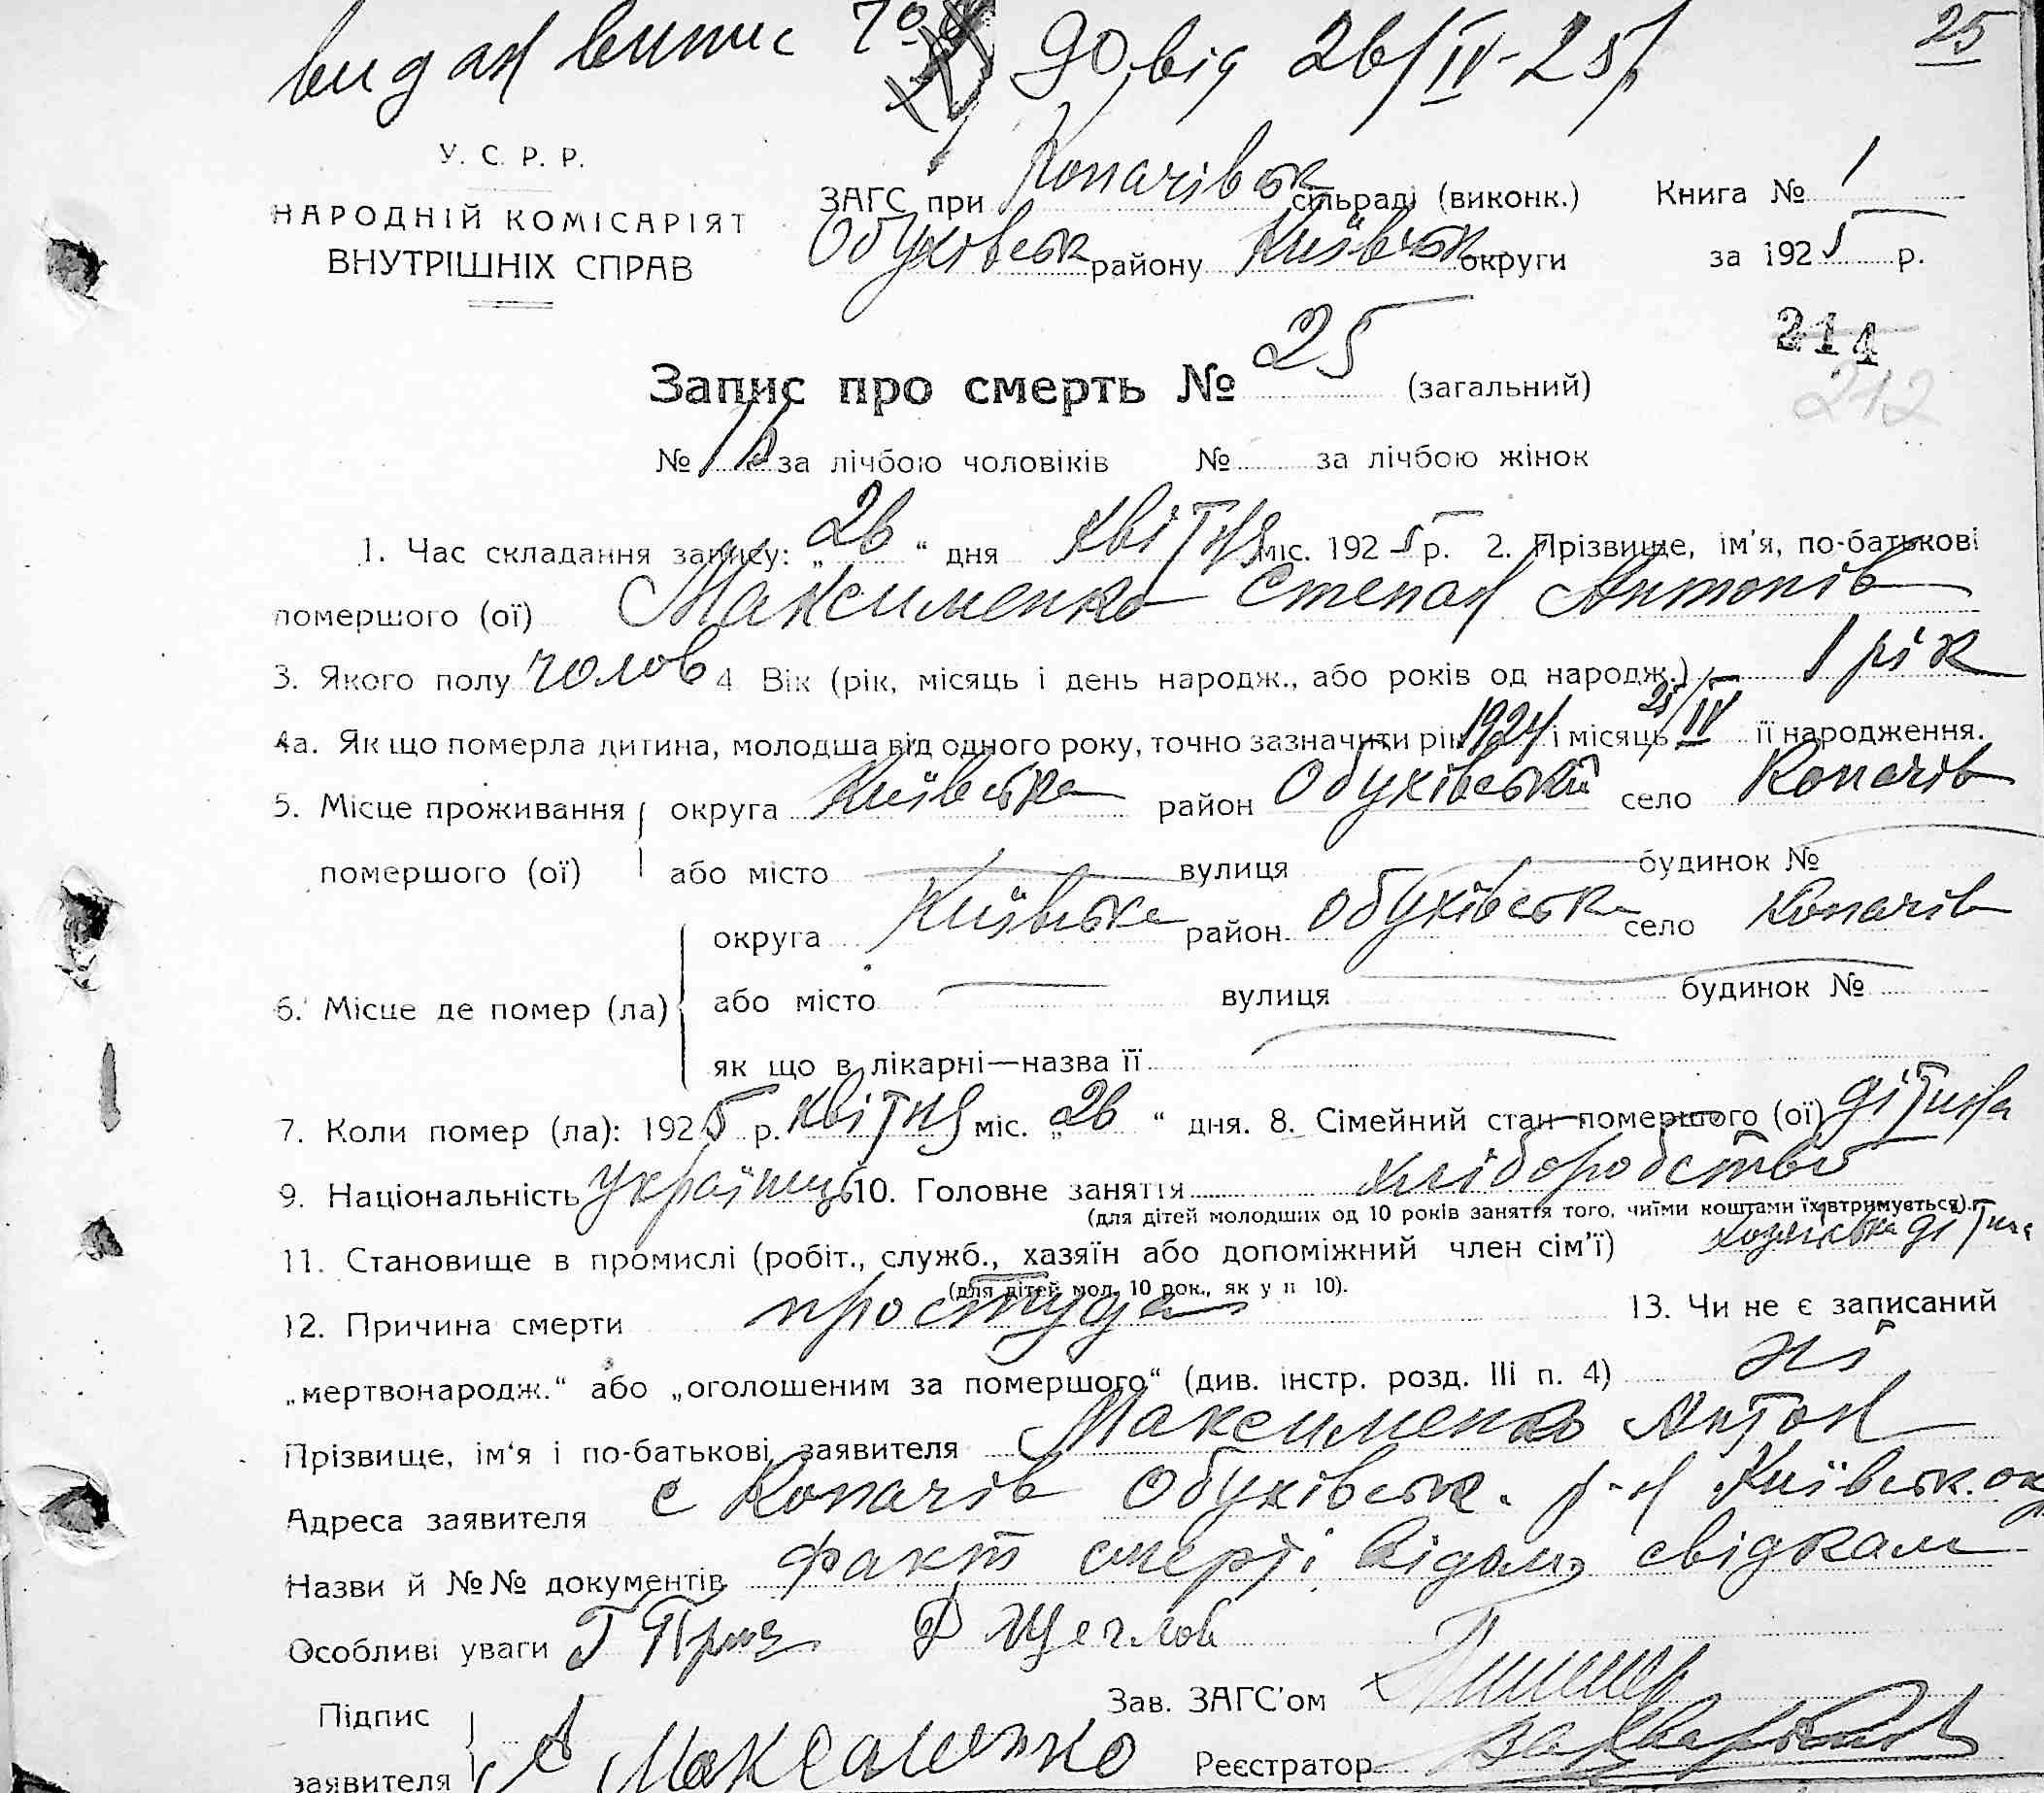 видан випис 90 від 26/IV-25р 25
У. С. Р. Р.
НАРОДНІЙ КОМІСАРІЯТ
ВНУТРІШНІХ СПРАВ
ЗАГС при Копачівськ сільраді (виконк.) Книга № 1
Обухівськ району Київськ округи за 1925 р.
214
212
Запис про смерть № 25 (загальний)
№ 16 за лічбою чоловіків № за лічбою жінок
1. Час складання запису: „26“ дня квітня міс. 1925 р. 2. Прізвище, ім'я, по-батькові
помершого (ої) Максименко Степан Антонів
3. Якого полу чолов 4 Вік (рік, місяць і день народж., або років од народж.) 1 рік
4а. Як що померла дитина, молодша від одного року, точно зазначити рік 1924 і місяць 25/IV її народження.
5. Місце проживання округа Київська район Обухівський село Копачів
помершого (ої) або місто вулиця будинок №
округа Київська район Обухівська село Копачів
6. Місце де помер (ла) або місто вулиця будинок №
як що в лікарні—назва її
7. Коли помер (ла): 1925 р. квітня міс. „26“ дня. 8. Сімейний стан помершого (ої) дітина
9. Національність українець 10. Головне заняття хліборобство
(для дітей молодших од 10 років заняття того, чиїми коштами їх втримується).
11. Становище в промислі (робіт., служб., хазяїн або допоміжний член сім'ї) хозяїська дітина
(для дітей мол. 10 рок., як у п 10).
12. Причина смерти простуда 13. Чи не є записаний
„мертвонародж.“ або „оголошеним за помершого“ (див. інстр. розд. III п. 4) ні
Прізвище, ім'я і по-батькові заявителя Максименко Антон
Адреса заявителя с Копачів Обухівськ. р-н Київськ. ок
Назви й №№ документів факт смерті відом. свідкам
Особливі уваги Г Ф Щеглов
Підпис Зав. ЗАГС'ом
заявителя А Максименко Реєстратор